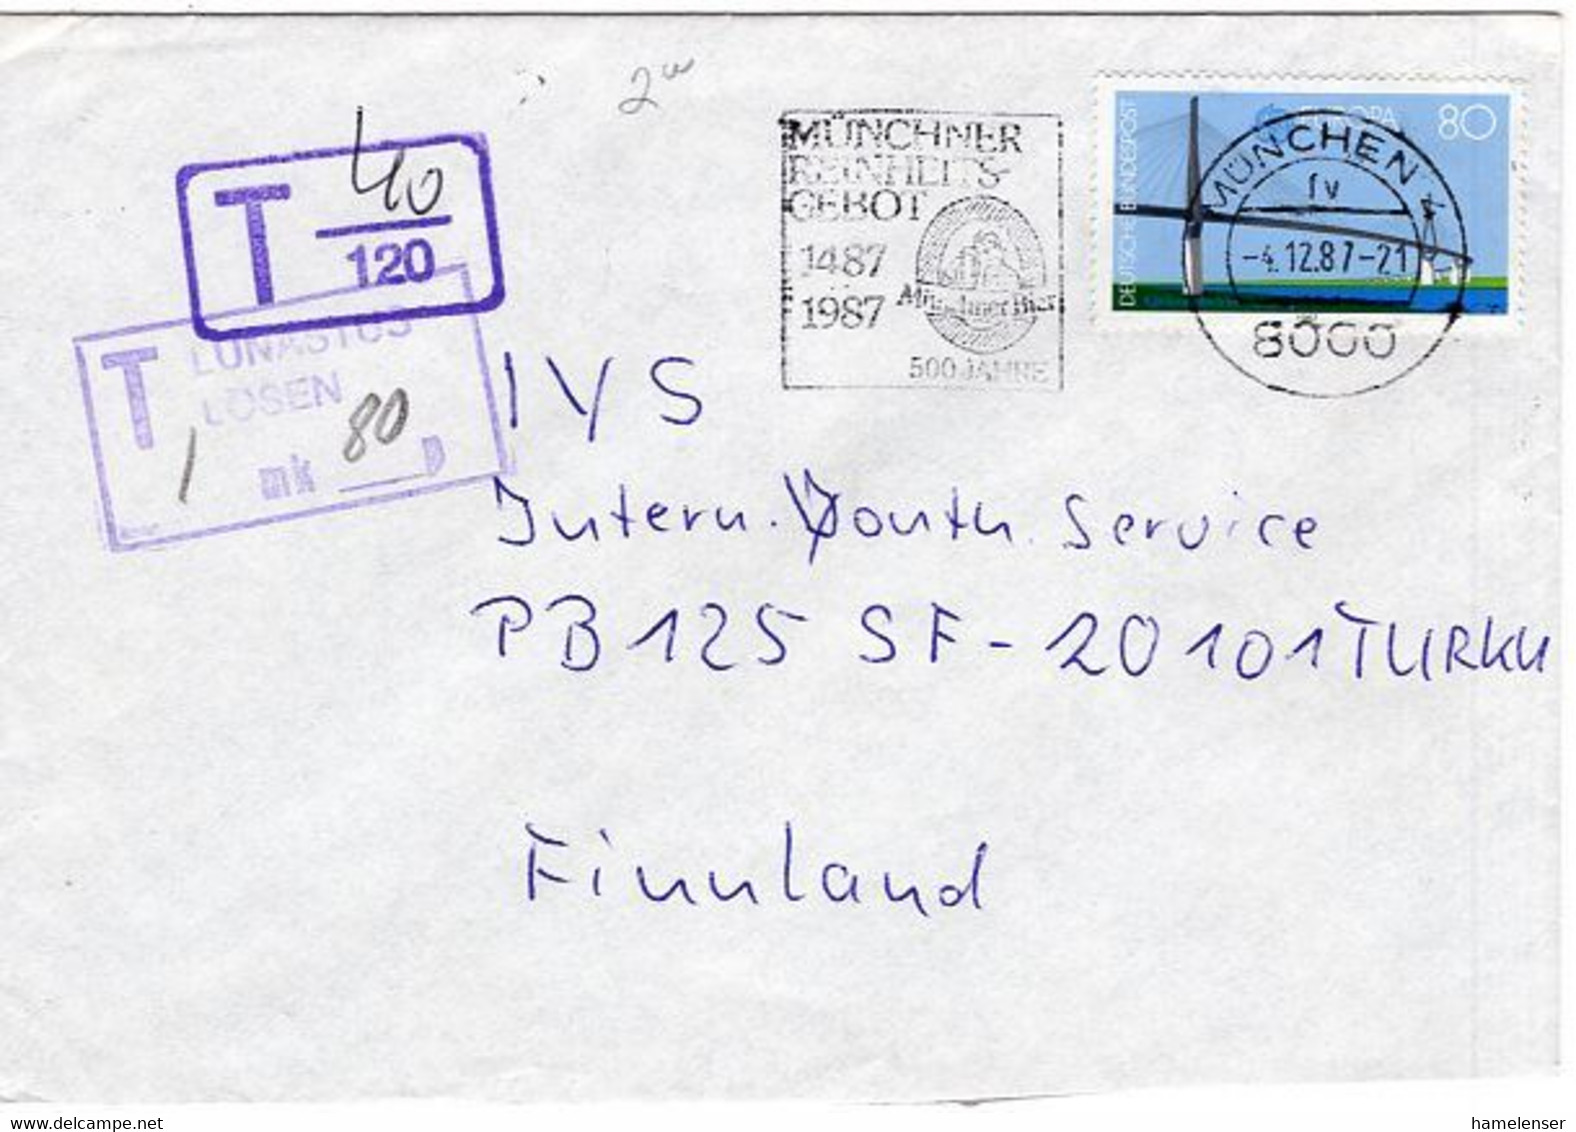 2
MÜNCHNER
REINHEITS-
GEBOT
1487
1987
Münchner Bier
500 JAHRE
DEUTSCHE BUNDESPOST
EUROPA
80
MÜNCHEN 4
fv
-4.12.87-21
8000
T 40
120
T LUNASTUS
LÖSEN
1 mk 80 p
IYS
Intern. Youth. Service
PB 125 SF-20101 TURKU
Finnland
www.delcampe.net
hamelenser